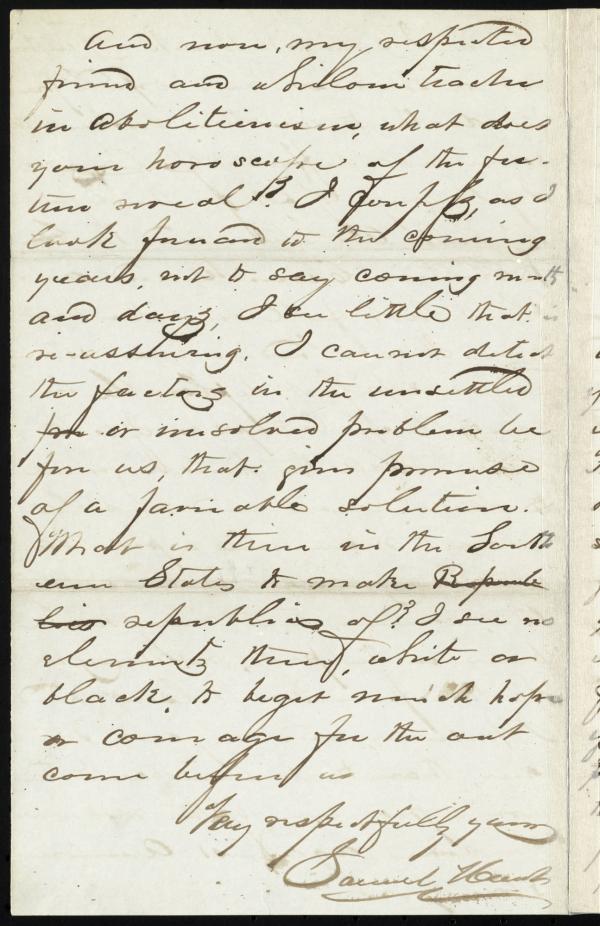 And now, my respected
friend and whilom teacher
in Abolitionism, what does
your horoscope of the fu-
ture reveal? I confess, as I
look forward to the coming
years, not to say coming month
and days, I see little that is
re-assuring. I cannot detect
the factors in the unsettled
or unsolved problem be
fore us, that give promise
of a favorable solution.
What is there in the South
ern States to make Repub
lics republics of? I see no
elements there, white or
black, to beget much hope
or courage for the out
come before us
Very respectfully yours
Samuel